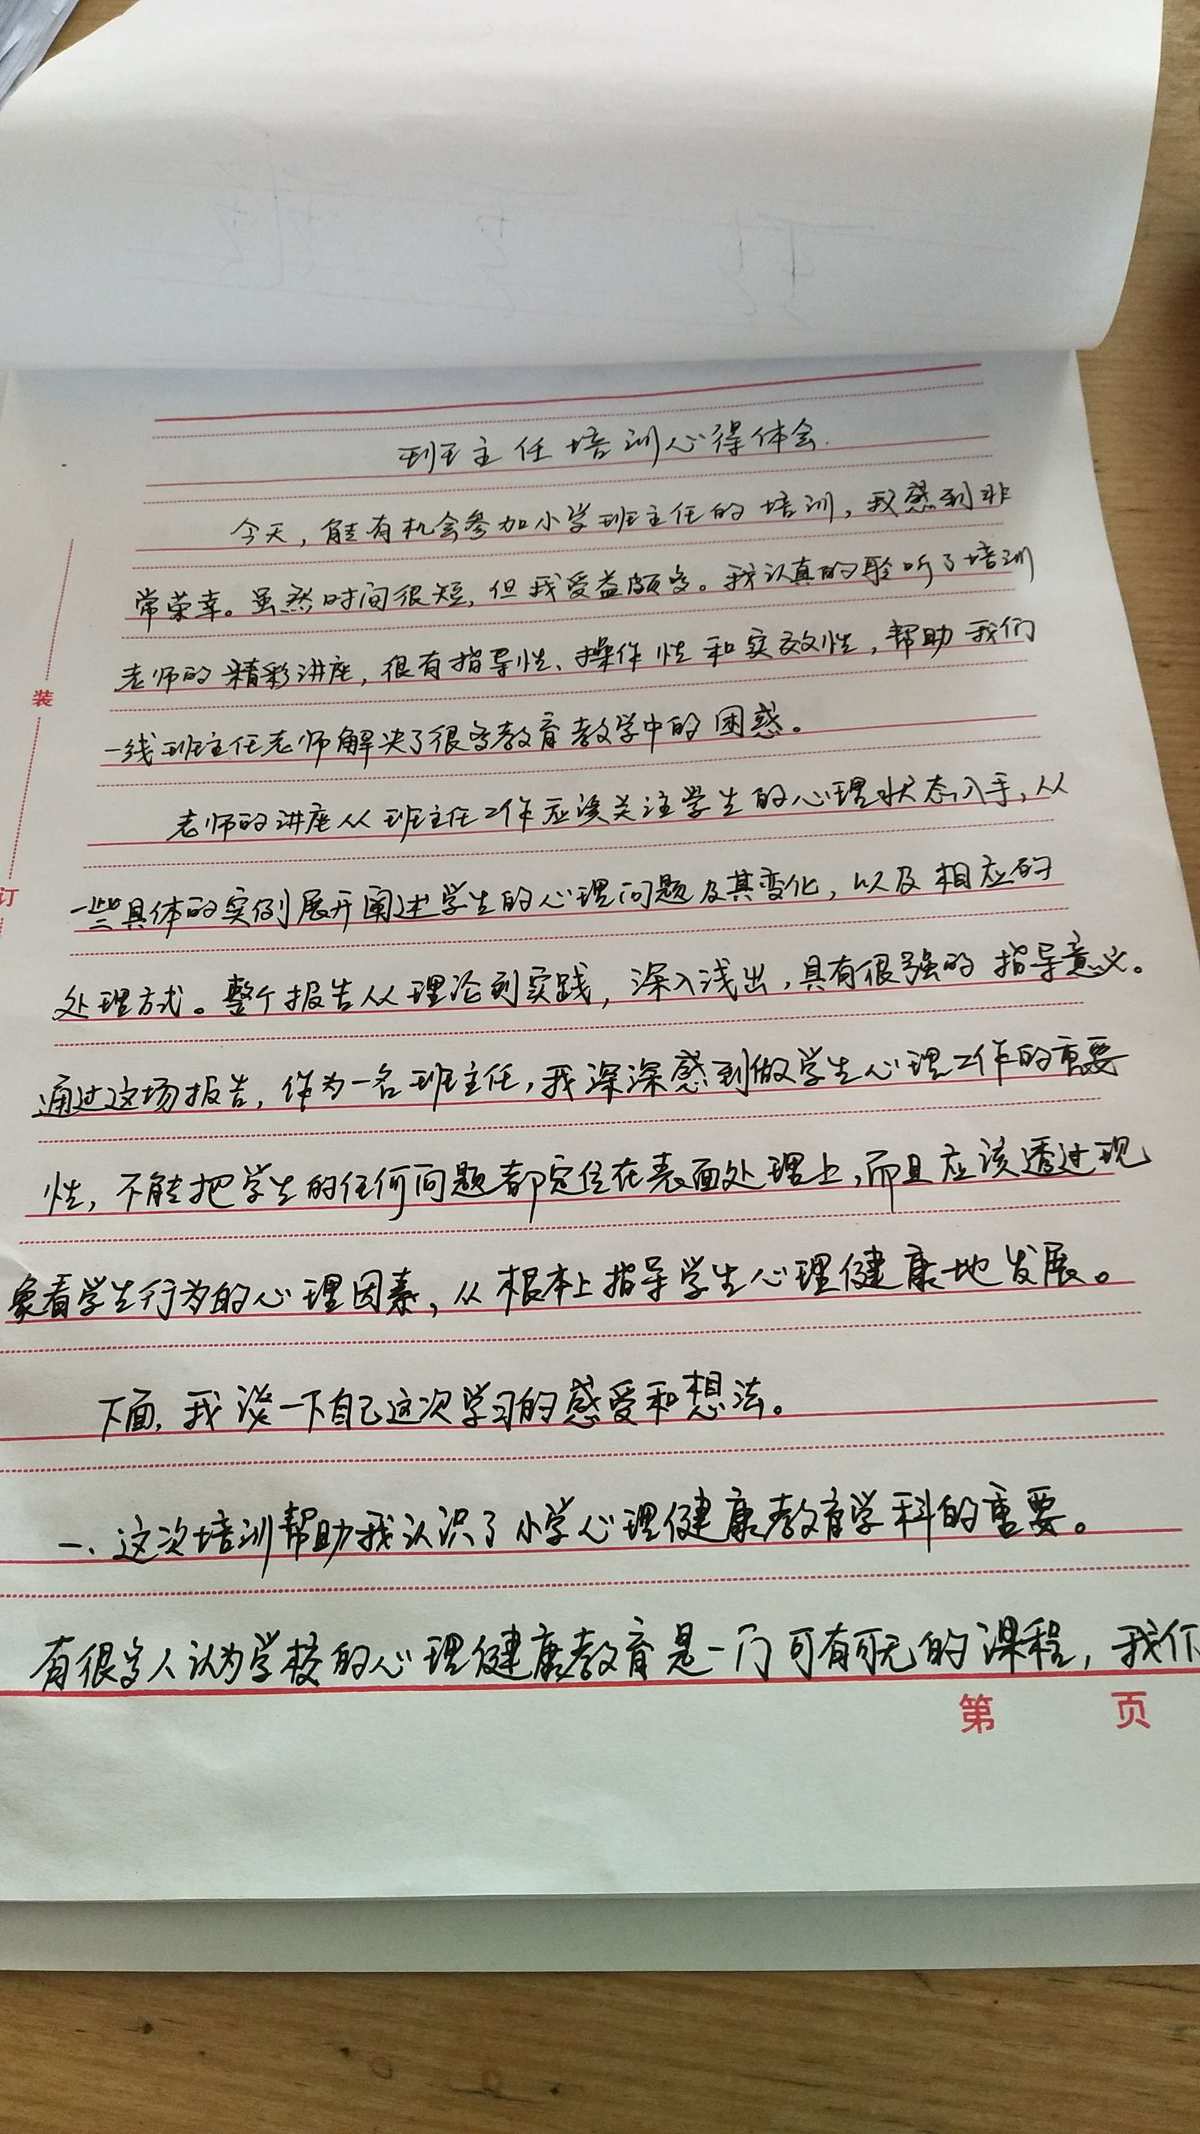 班主任培训心得体会.
今天,能有机会参加小学班主任的培训,我感到非
常荣幸。虽然时间很短,但我受益颇多。我认真的聆听了培训
老师的精彩讲座,很有指导性、操作性和实效性,帮助我们
一线班主任老师解决了很多教育教学中的困惑。
装
老师的讲座从班主任工作应该关注学生的心理状态入手,从
一些具体的实例展开阐述学生的心理问题及其变化,以及相应的
订
处理方式。整个报告从理论到实践,深入浅出,具有很强的指导意义。
通过这场报告,作为一名班主任,我深深感到做学生心理工作的重要
性,不能把学生的任何问题都定位在表面处理上,而且应该透过现
象看学生行为的心理因素,从根本上指导学生心理健康地发展。
下面,我谈一下自己这次学习的感受和想法。
一、这次培训帮助我认识了小学心理健康教育学科的重要。
有很多人认为学校的心理健康教育是一门可有可无的课程,我们
第 页